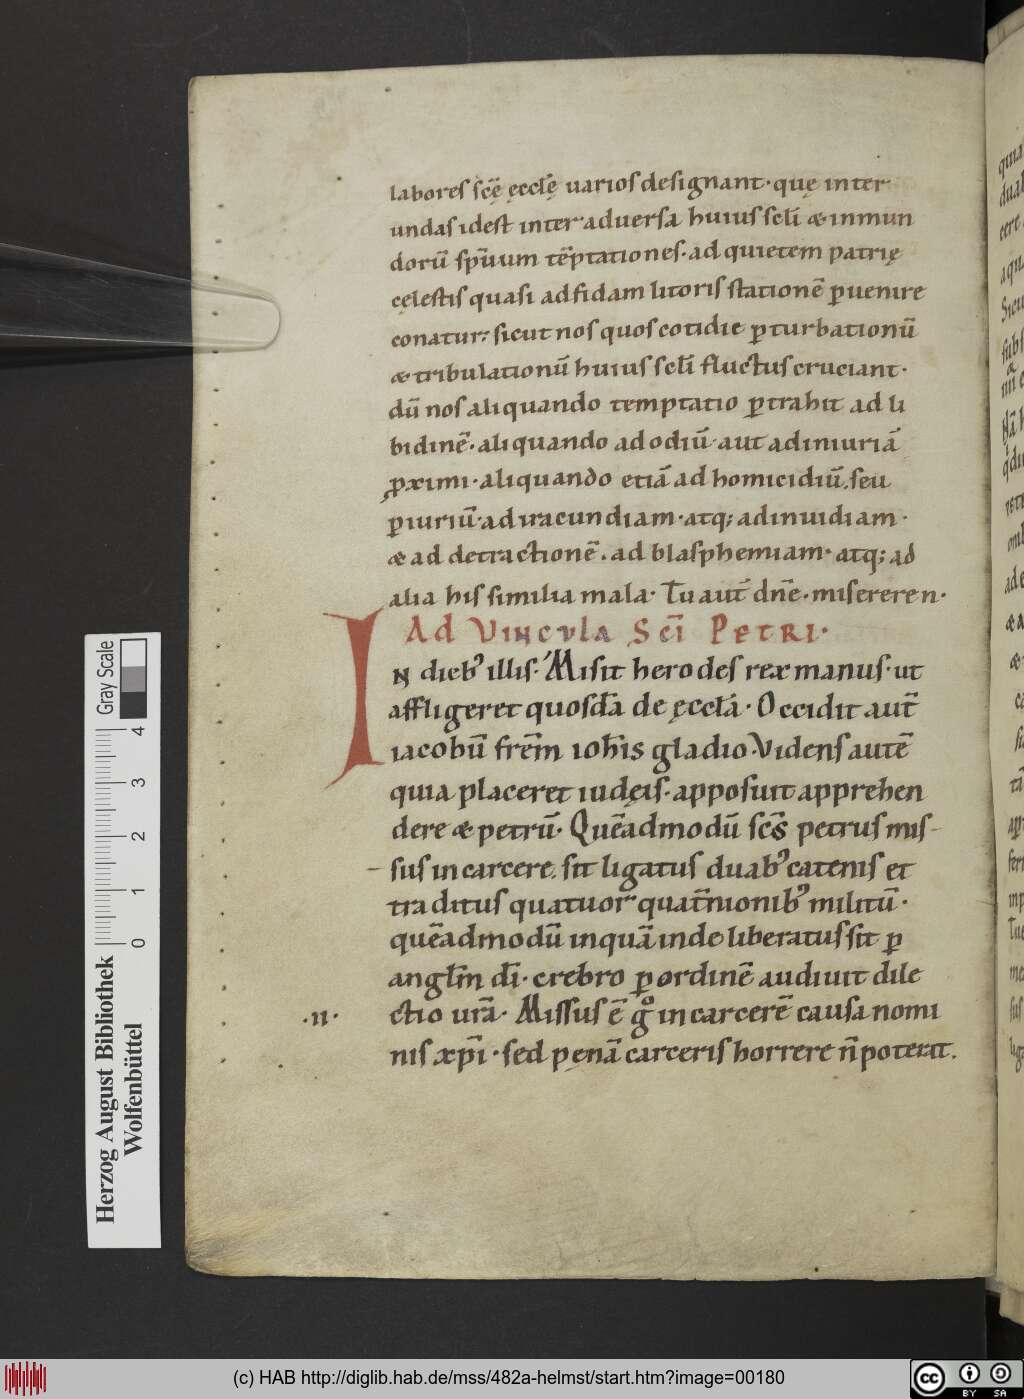 labores scę̄ ęccłę̄ uarios designant· quę inter
undas idest inter aduersa huius scłi & inmun
dorū sp̄uum tēptationes· ad quietem patrię
cęlestis quasi ad fidam litoris stationē ꝑuenire
conatur; sicut nos quos cotidie ꝑturbationū
& tribulationū huius scłi fluctus cruciant·
dū nos aliquando temptatio ꝑtrahit ad li
bidinē· aliquando ad odiū aut ad iniuriā
ꝓximi· aliquando etiā ad homicidiū. seu
ꝑiuriū· ad iracundiam· atq; ad inuidiam·
& ad detractionē. ad blasphemiam· atq; ad
alia his similia mala· Tu aut̄ dn̄e. miserere n·
Ad Vincvla Scī Petri·
In dieb' illis· Misit herodes rex manus· ut
affligeret quosdā de ęccłā· Occidit aut̄
iacobū frēm ioh̄is gladio· Videns autē
quia placeret iudęis· apposuit apprehen
dere & petrū· Quēadmodū sc̄s petrus mis-
sus in carcere. sit ligatus duab' catenis et
traditus quatuor quat̄nionib' militū·
quēadmodū inquā inde liberatus sit ꝑ
angłm dī· crebro ꝑ ordinē audiuit dile
ctio ur̄a· Missus ē gͦ in carcerē causa nomi
·II·
nis xp̄i· sed pęnā carceris horrere n̄ poterat.
quia
dual
cere
aqu
Sicu
Herzog August Bibliothek
Wolfenbüttel
0 1 2 3 4
Gray Scale
(c) HAB http://diglib.hab.de/mss/482a-helmst/start.htm?image=00180
cc BY SA